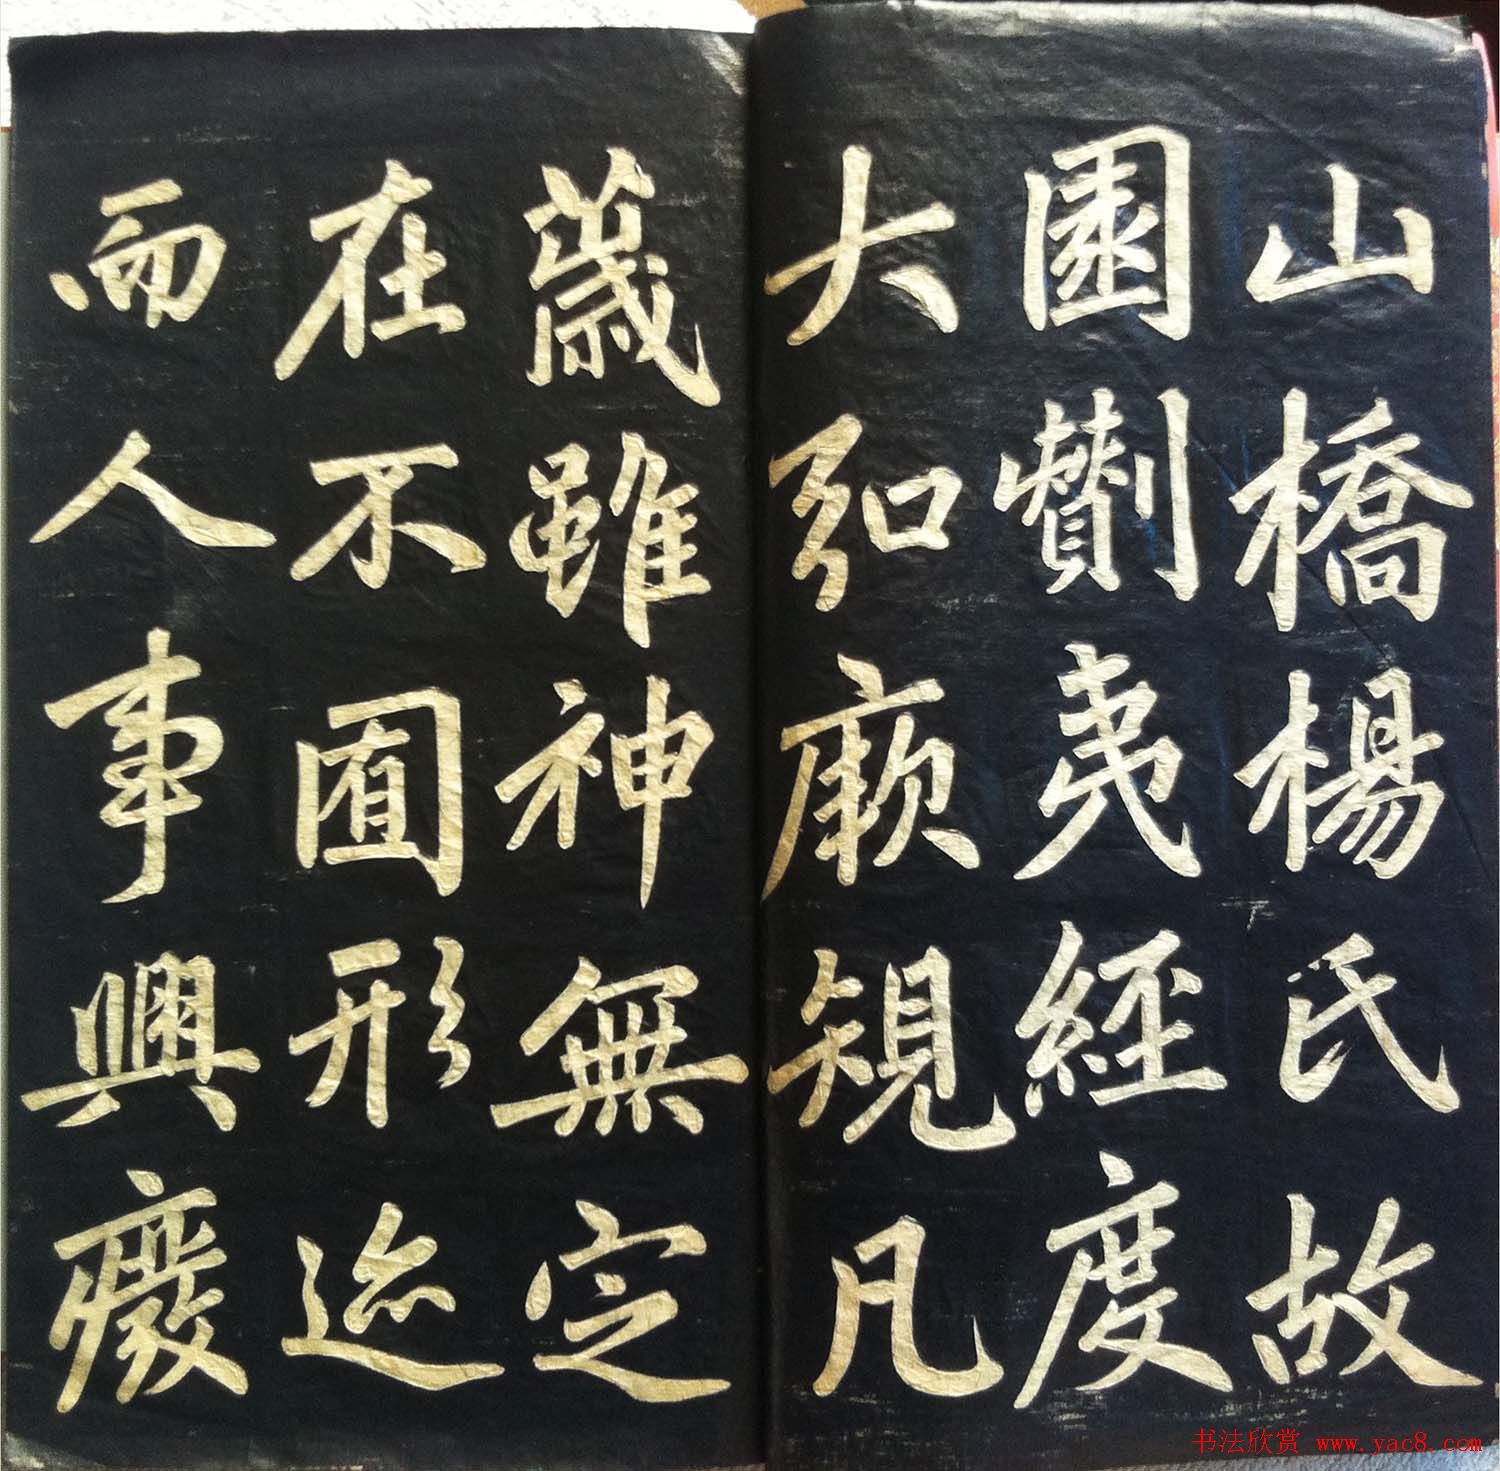 山橋楊氏故
園劗夷經度
大弘厥規凡
歲雖神無定
在不囿形迹
而人事興廢
书法欣赏 www.yac8.com